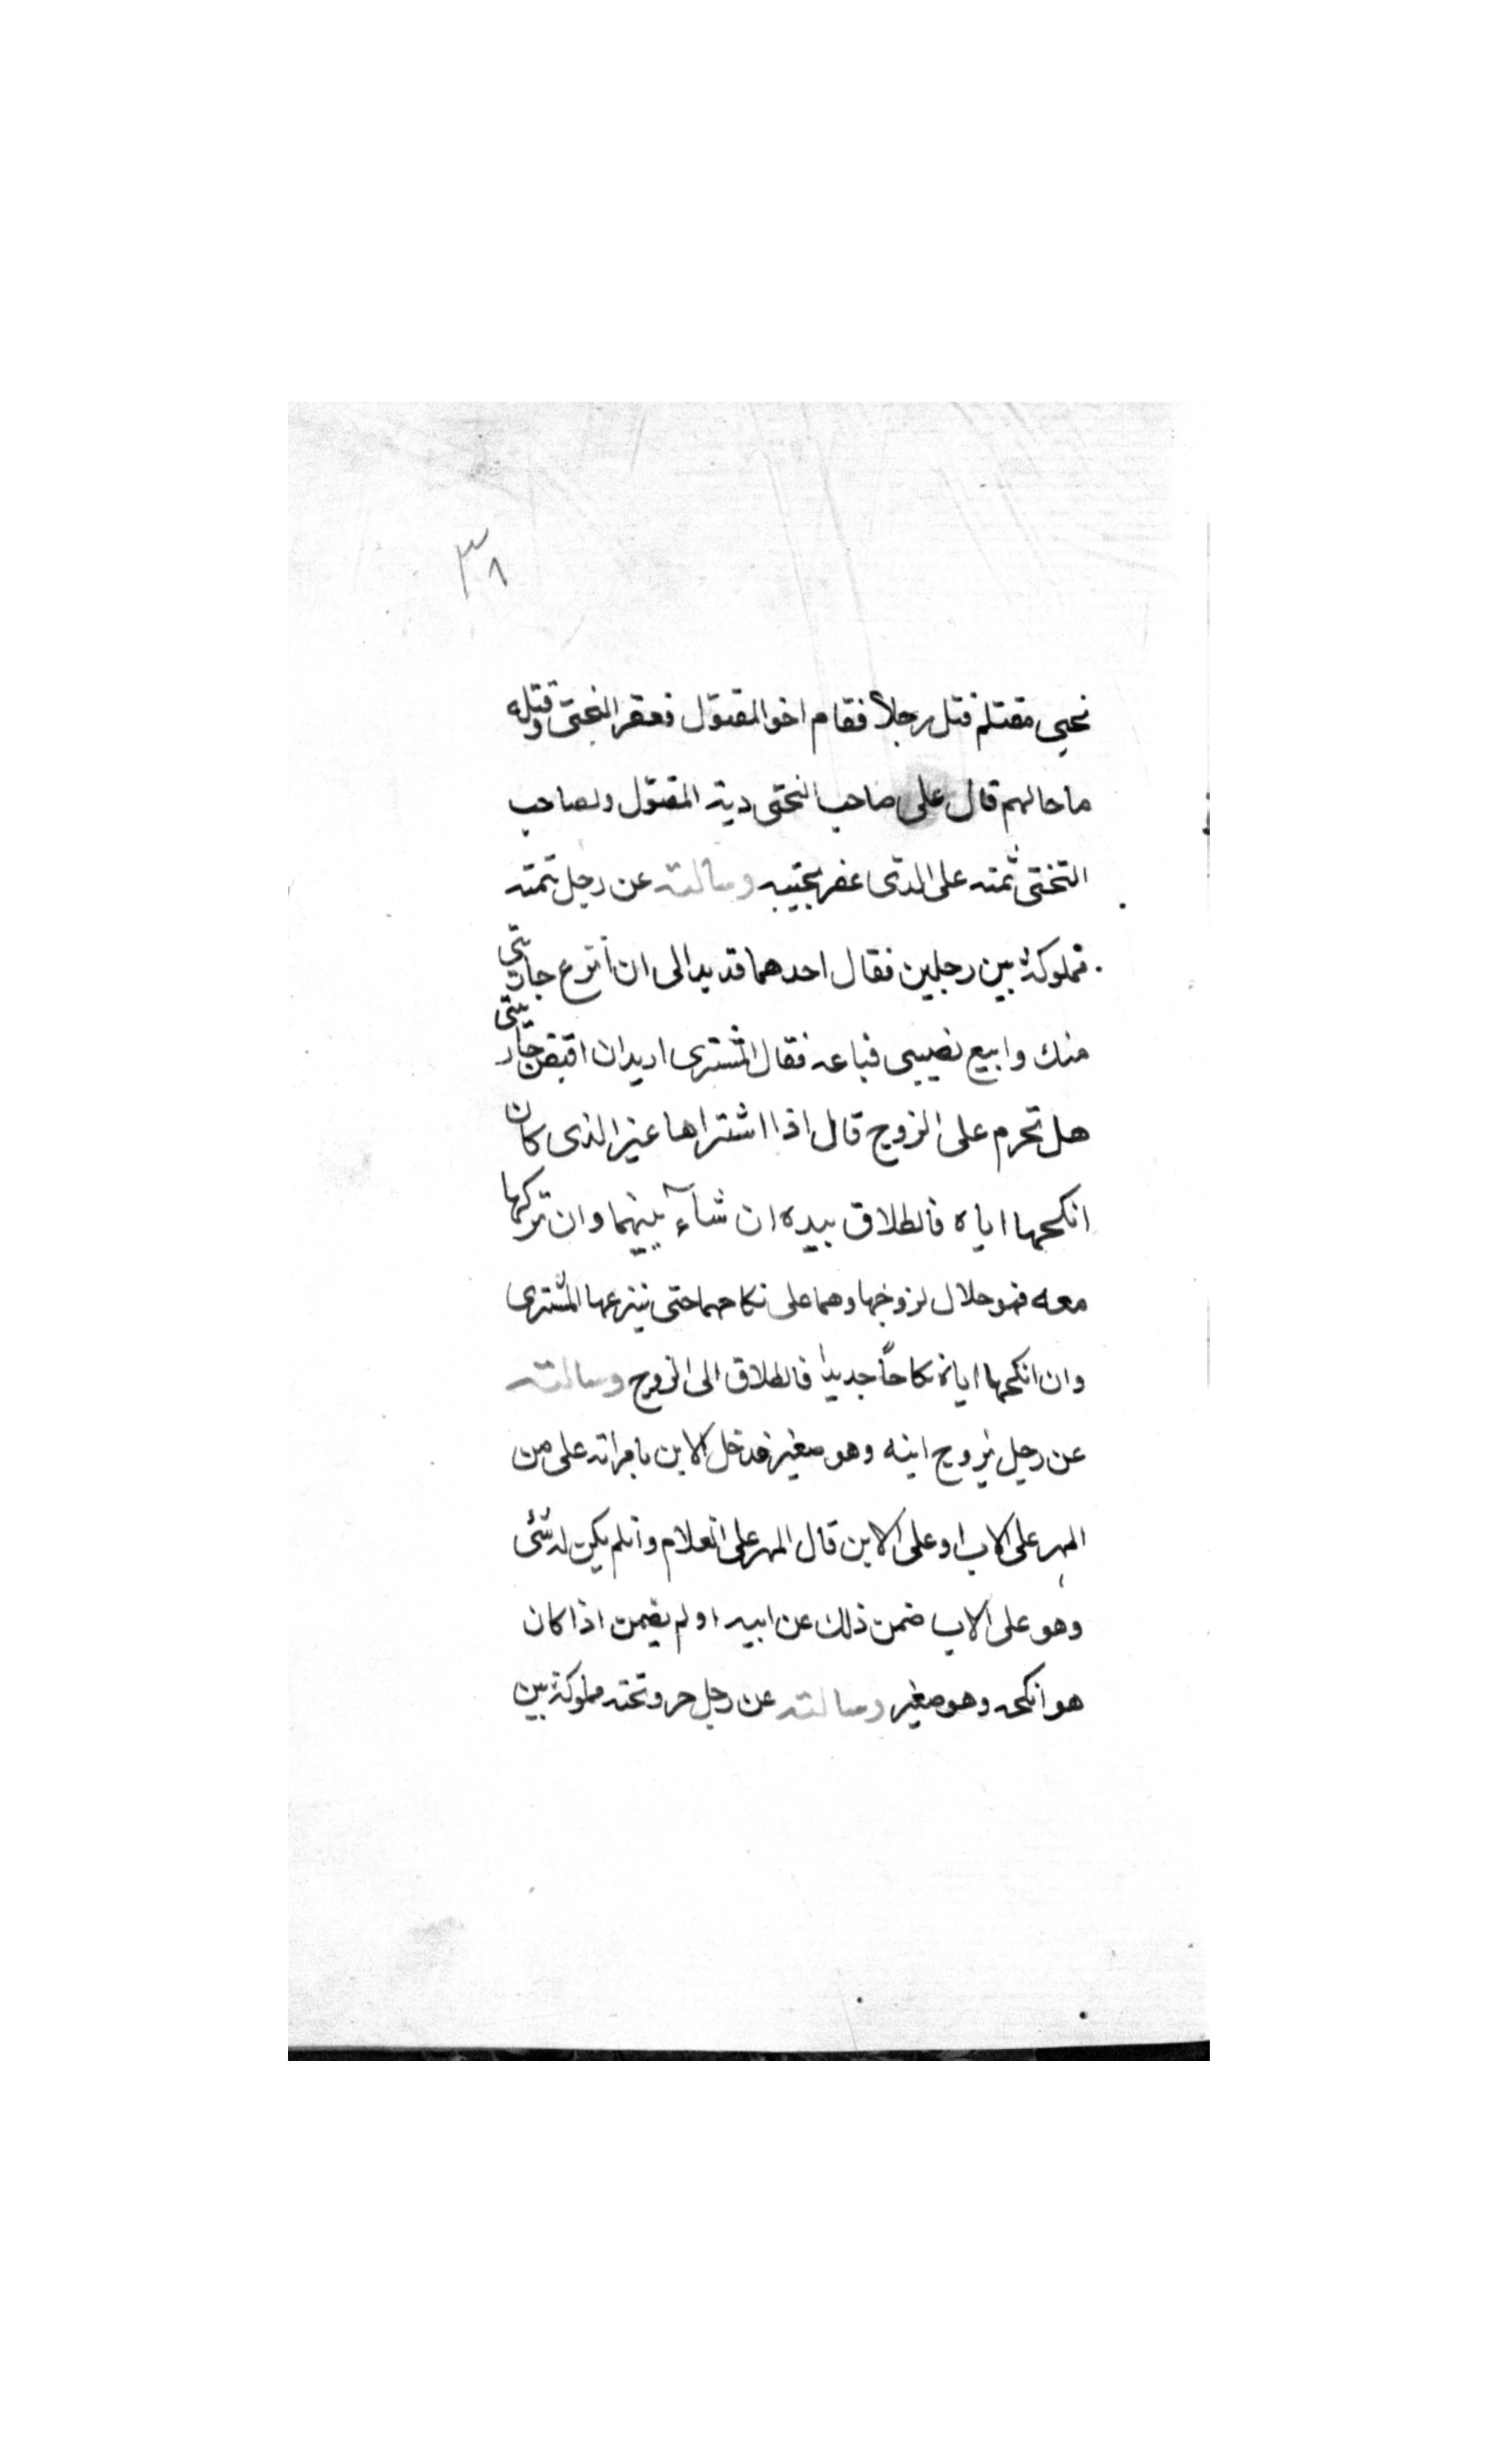 ٣٨
نحیی مقتلم فتل رجلاً فقام اخو المقتول فعقر النجتی وقتله
ما حالهم قال علی صاحب النحتی دیة المقتول ولصاحب
التختی ثمنه علی الذی عفر بختیه وسالته عن رجل تمته
مملوکة بین رجلین فقال احدهما قد بدا لی ان انزع جاریتی
منك وابیع نصیبی فباعه فقال المشتری ارید ان اقبض جاریتی
هل تحرم علی الزوج قال اذا اشتراها غیر الذی کان
انکحها ایاه فالطلاق بیده ان شآء بینهما وان ترکها
معه فهو حلال لزوجها وهما علی نکاحهما حتی ینزعها المشتری
وان انکحها ایاه نکاحاً جدیدا فالطلاق الی الزوج وسالته
عن رجل یزوج ابنه وهو صغیر فدخل الابن بامراته علی من
المهر علی الاب او علی الابن قال المهر علی الغلام وانلم یکن له شئی
وهو علی الاب ضمن ذلك عن ابیه او لم یضمن اذا کان
هو انکحه وهو صغیر وسالته عن رجل حر وتحته مملوکة بین